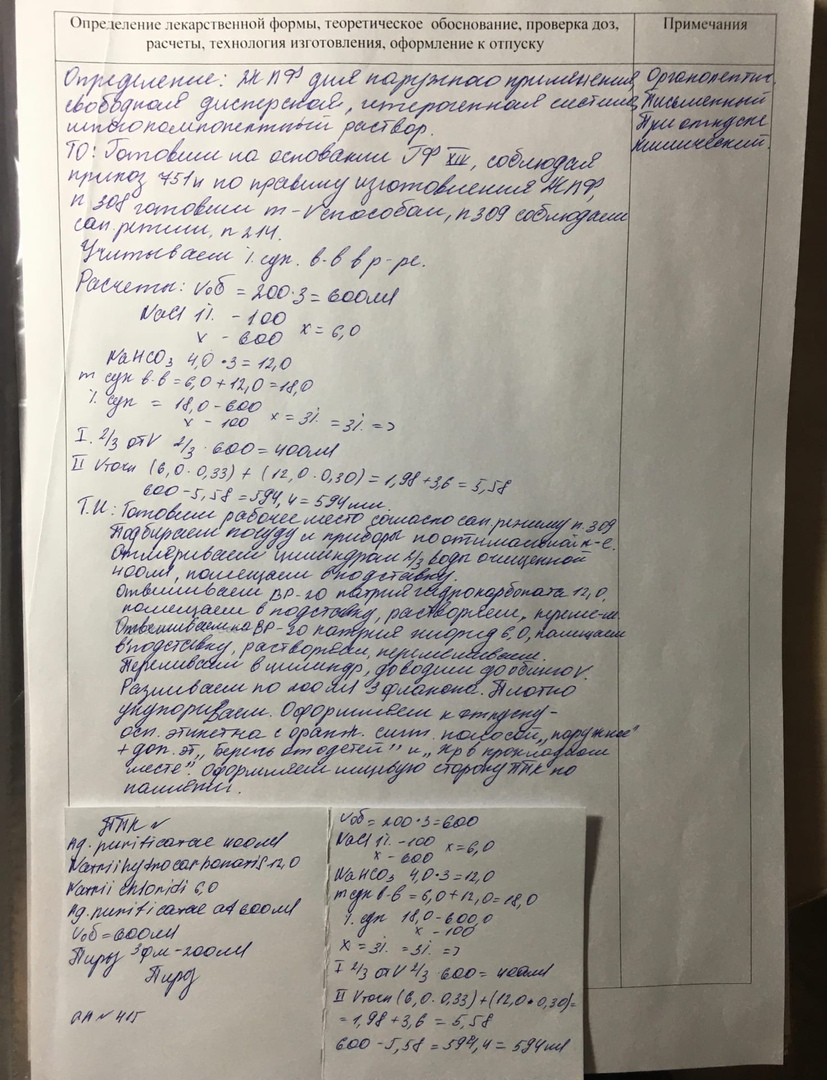 Определение лекарственной формы, теоретическое обоснование, проверка доз,
расчеты, технология изготовления, оформление к отпуску
Примечания
Определение: ЖЛФ для наружного применения,
свободная дисперсная, гетерогенная система,
многокомпонентный раствор.
Органолептич.
Письменный
При отпуске
Химический.
ТО: Готовим на основании ГФ XIV, соблюдая
приказ 751н по правилу изготовления ЖЛФ,
п 308 готовим m-V способом, п 309 соблюдаем
сан. режим, п 214.
Учитываем % сух. в-в в р-ре.
Расчеты: Vоб = 200·3 = 600мл
NaCl 1% - 100
x - 600 x = 6,0
NaHCO3 4,0·3 = 12,0
m сух в-в = 6,0 + 12,0 = 18,0
% сух = 18,0 - 600
x - 100 x = 3% = 3% =>
I. 2/3 от V 2/3 · 600 = 400мл
II Vточн (6,0·0,33) + (12,0·0,30) = 1,98 + 3,6 = 5,58
600 - 5,58 = 594,4 = 594мл.
Т.И: Готовим рабочее место согласно сан. режиму п. 309
Подбираем посуду и приборы по оптимальной
Отмериваем цилиндром 2/3 воды очищенной
400мл, помещаем в подставку.
Отвешиваем ВР-20 натрия гидрокарбоната 12,0,
помещаем в подставку, растворяем, перемеш.
Отвешиваем на ВР-20 натрия хлорид 6,0, помещаем
в подставку, растворяем, перемешиваем.
Переливаем в цилиндр, доводим до общего V.
Разливаем по 200мл 3 флакона. Плотно
укупориваем. Оформляем к отпуску -
осн. этикетка с оранж. сигн. полосой „наружное"
+ доп. эт. „Беречь от детей" и „Хр в прохладном
месте". Оформляем лицевую сторону ППК по
памяти.
ППК №
Aq. purificatae 400мл
Natrii hydrocarbonatis 12,0
Natrii chloridi 6,0
Aq. purificatae ad 600мл
Vоб = 600мл
3 фл - 200мл
№ 415
Vоб = 200·3 = 600
NaCl 1% - 100
x - 600 x = 6,0
NaHCO3 4,0·3 = 12,0
m сух в-в = 6,0 + 12,0 = 18,0
% сух 18,0 - 600,0
x - 100
x = 3% = 3% =>
I 2/3 от V 2/3 · 600 = 400мл
II Vточн (6,0·0,33) + (12,0·0,30) =
= 1,98 + 3,6 = 5,58
600 - 5,58 = 594,4 = 594мл